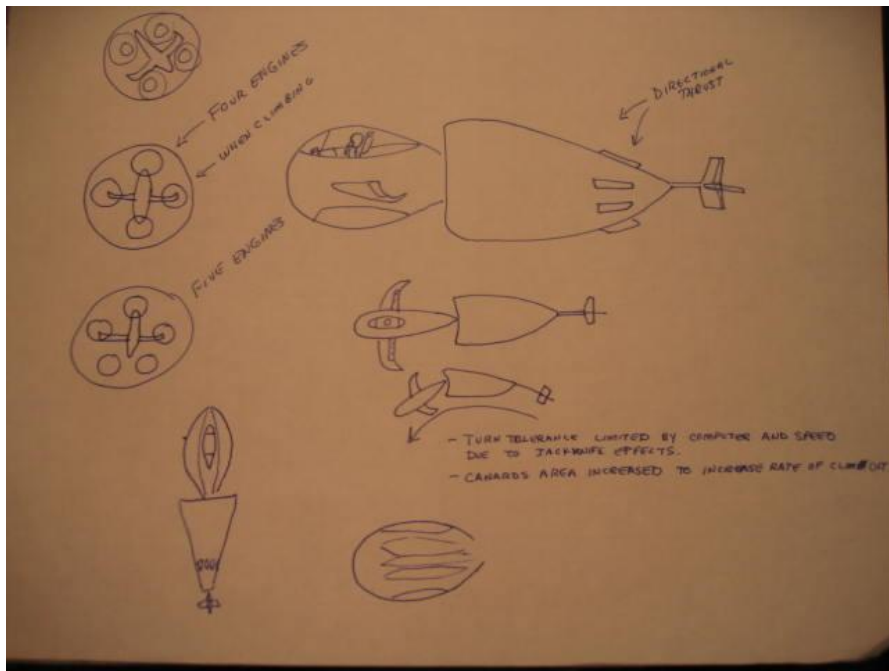 FOUR ENGINES
WHEN CLIMBING
FIVE ENGINES
DIRECTIONAL
THRUST
- TURN TOLERANCE LIMITED BY COMPUTER AND SPEED
DUE TO JACKKNIFE EFFECTS.
- CANARDS AREA INCREASED TO INCREASE RATE OF CLIMB OUT